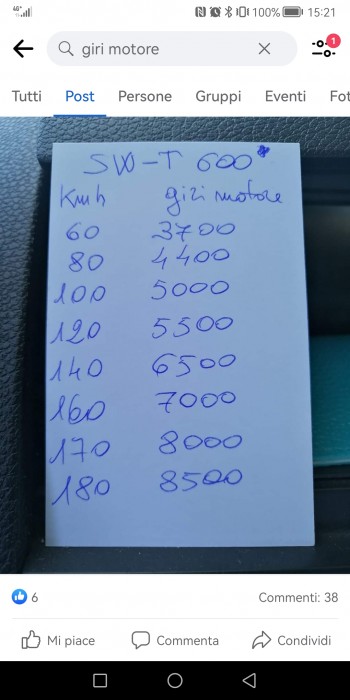 4G+ 100% 15:21
giri motore
1
Tutti Post Persone Gruppi Eventi Fot
SW-T 600*
Kmh giri motore
60 3700
80 4400
100 5000
120 5500
140 6500
160 7000
170 8000
180 8500
6 Commenti: 38
Mi piace Commenta Condividi